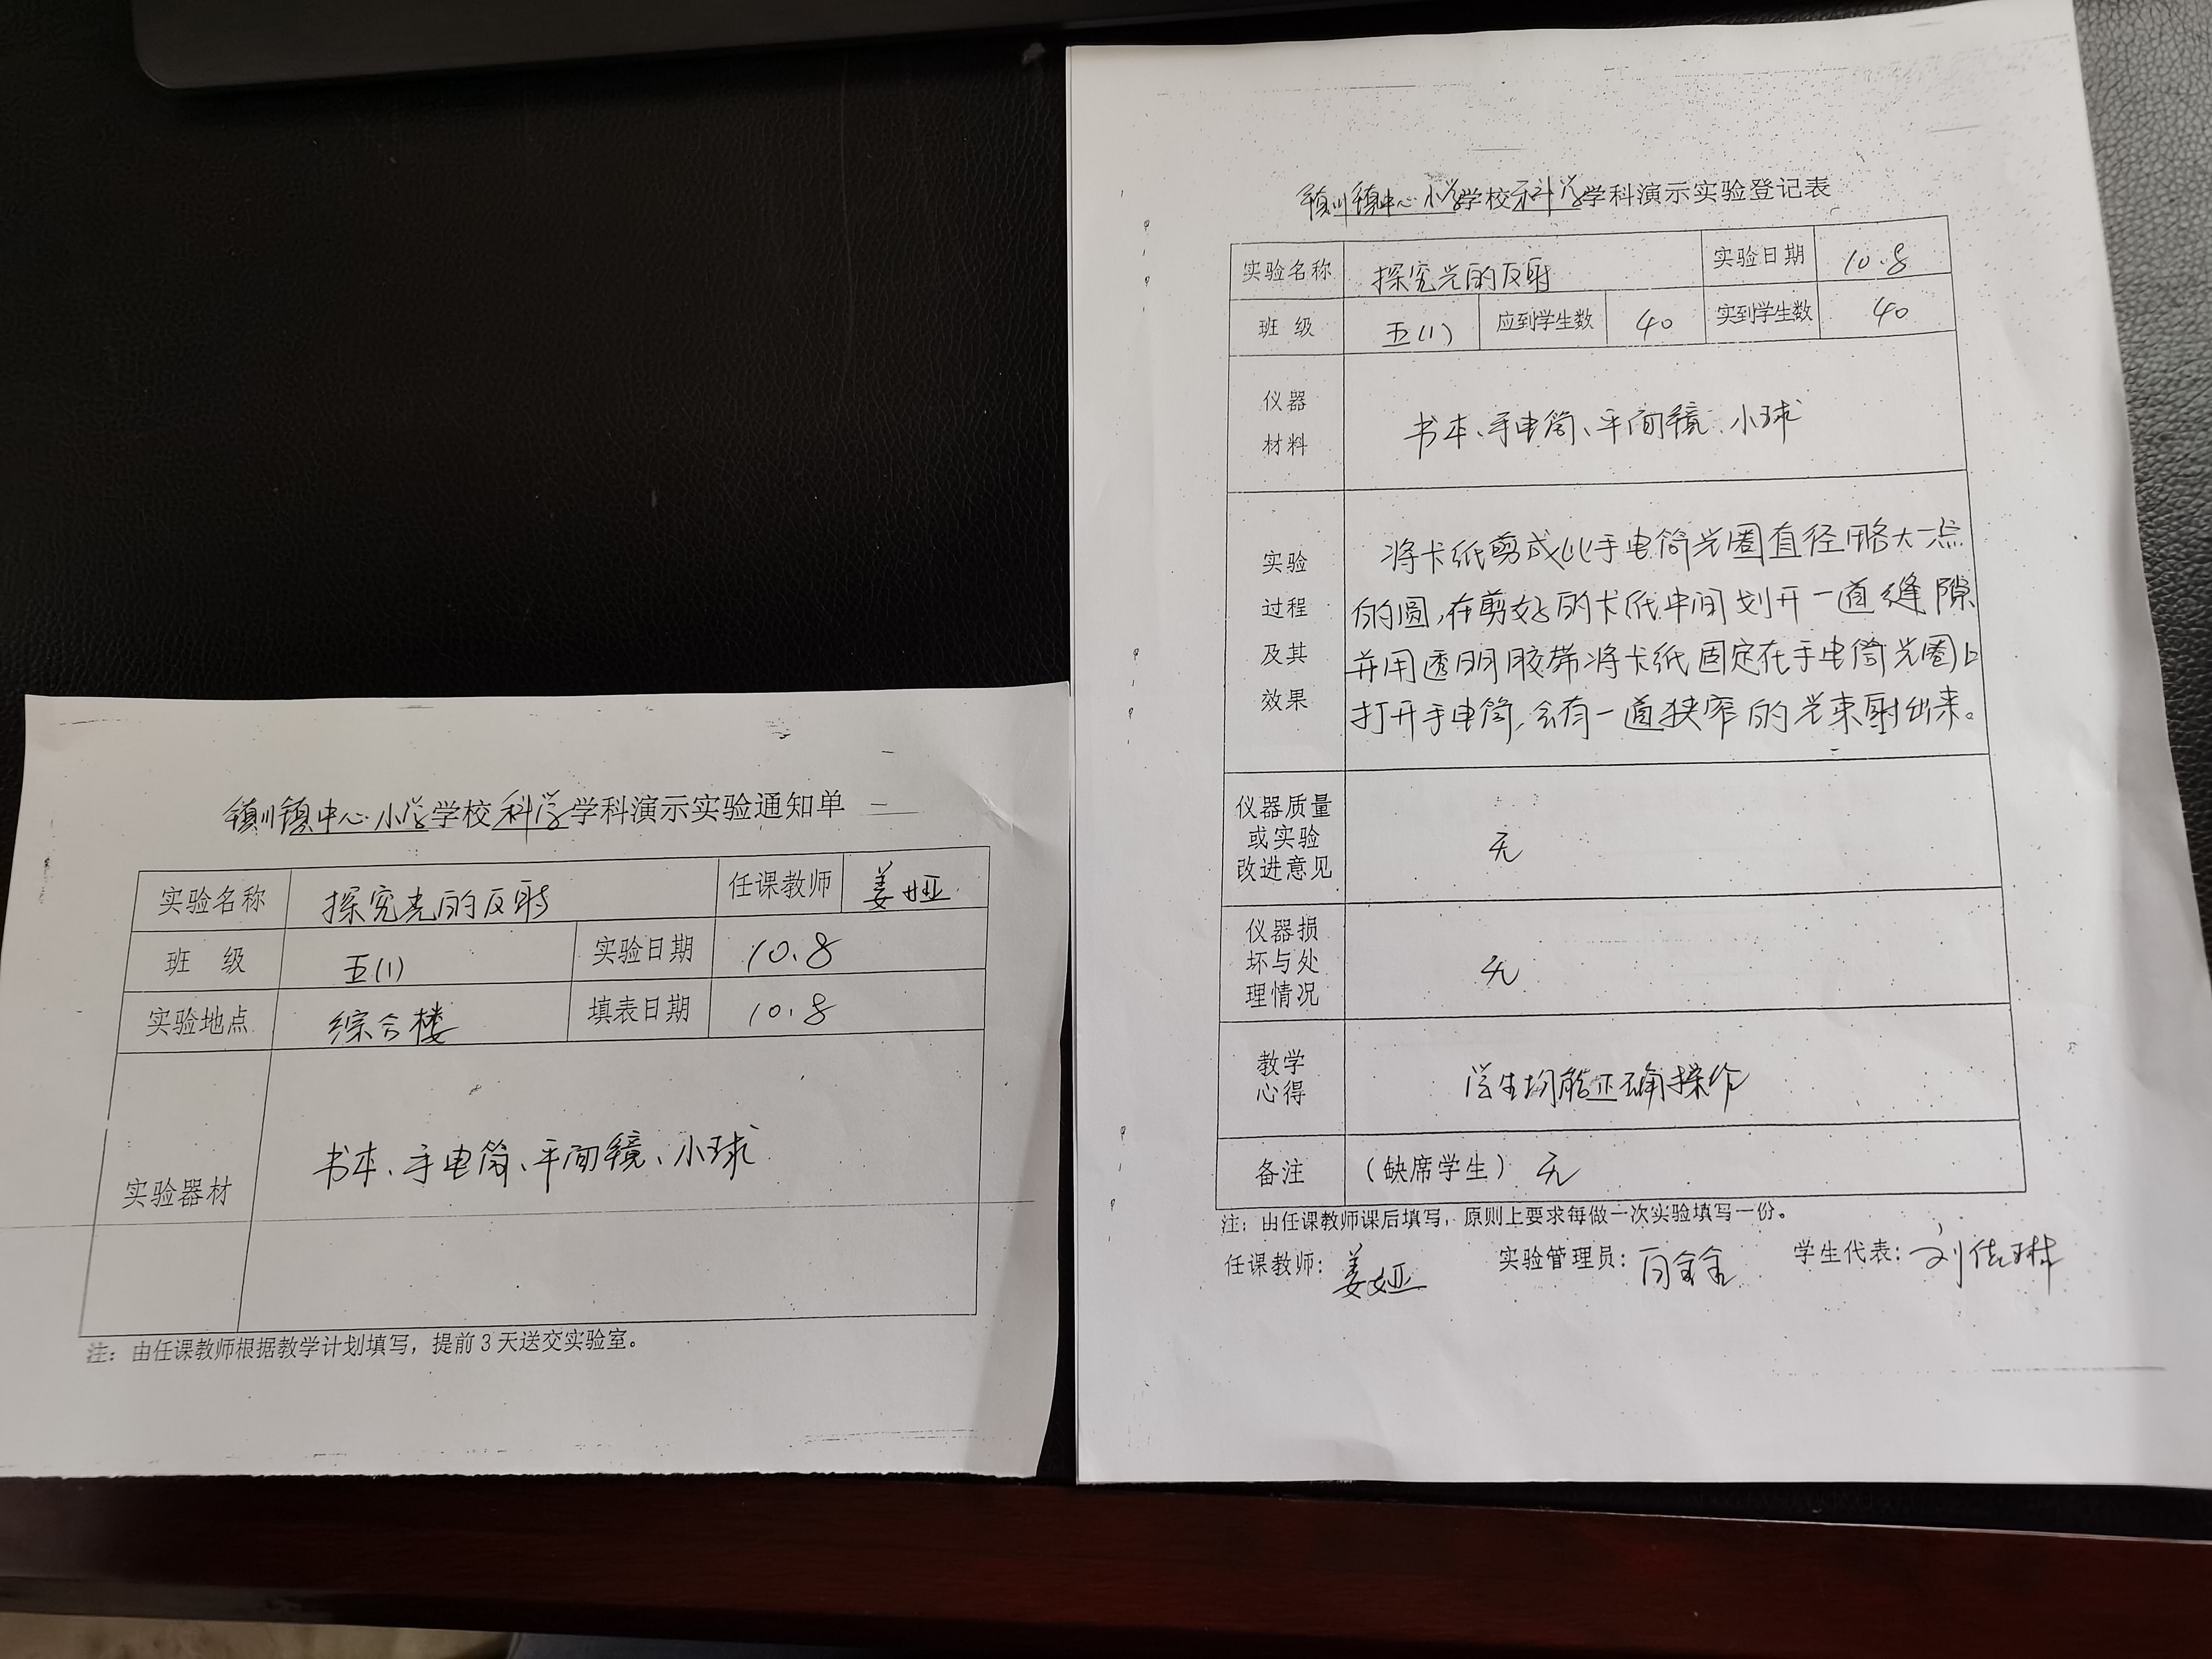 镇川镇中心小学学校科学学科演示实验通知单
实验名称 探究光的反射 任课教师 姜娅
班 级 五(1) 实验日期 10.8
实验地点 综合楼 填表日期 10.8
实验器材 书本、手电筒、平面镜、小球
注：由任课教师根据教学计划填写，提前3天送交实验室。
镇川镇中心小学学校科学学科演示实验登记表
实验名称 探究光的反射 实验日期 10.8
班 级 五(1) 应到学生数 40 实到学生数 40
仪器
材料
书本、手电筒、平面镜、小球
实验
过程
及其
效果
将卡纸剪成比手电筒光圈直径略大一点
的圆，在剪好的卡纸中间划开一道缝隙
并用透明胶带将卡纸固定在手电筒光圈上
打开手电筒，会有一道狭窄的光束射出来。
仪器质量
或实验
改进意见
无
仪器损
坏与处
理情况
无
教学
心得
学生均能正确操作
备注 （缺席学生） 无
注：由任课教师课后填写，原则上要求每做一次实验填写一份。
任课教师： 姜娅 实验管理员： 学生代表： 刘佐琳